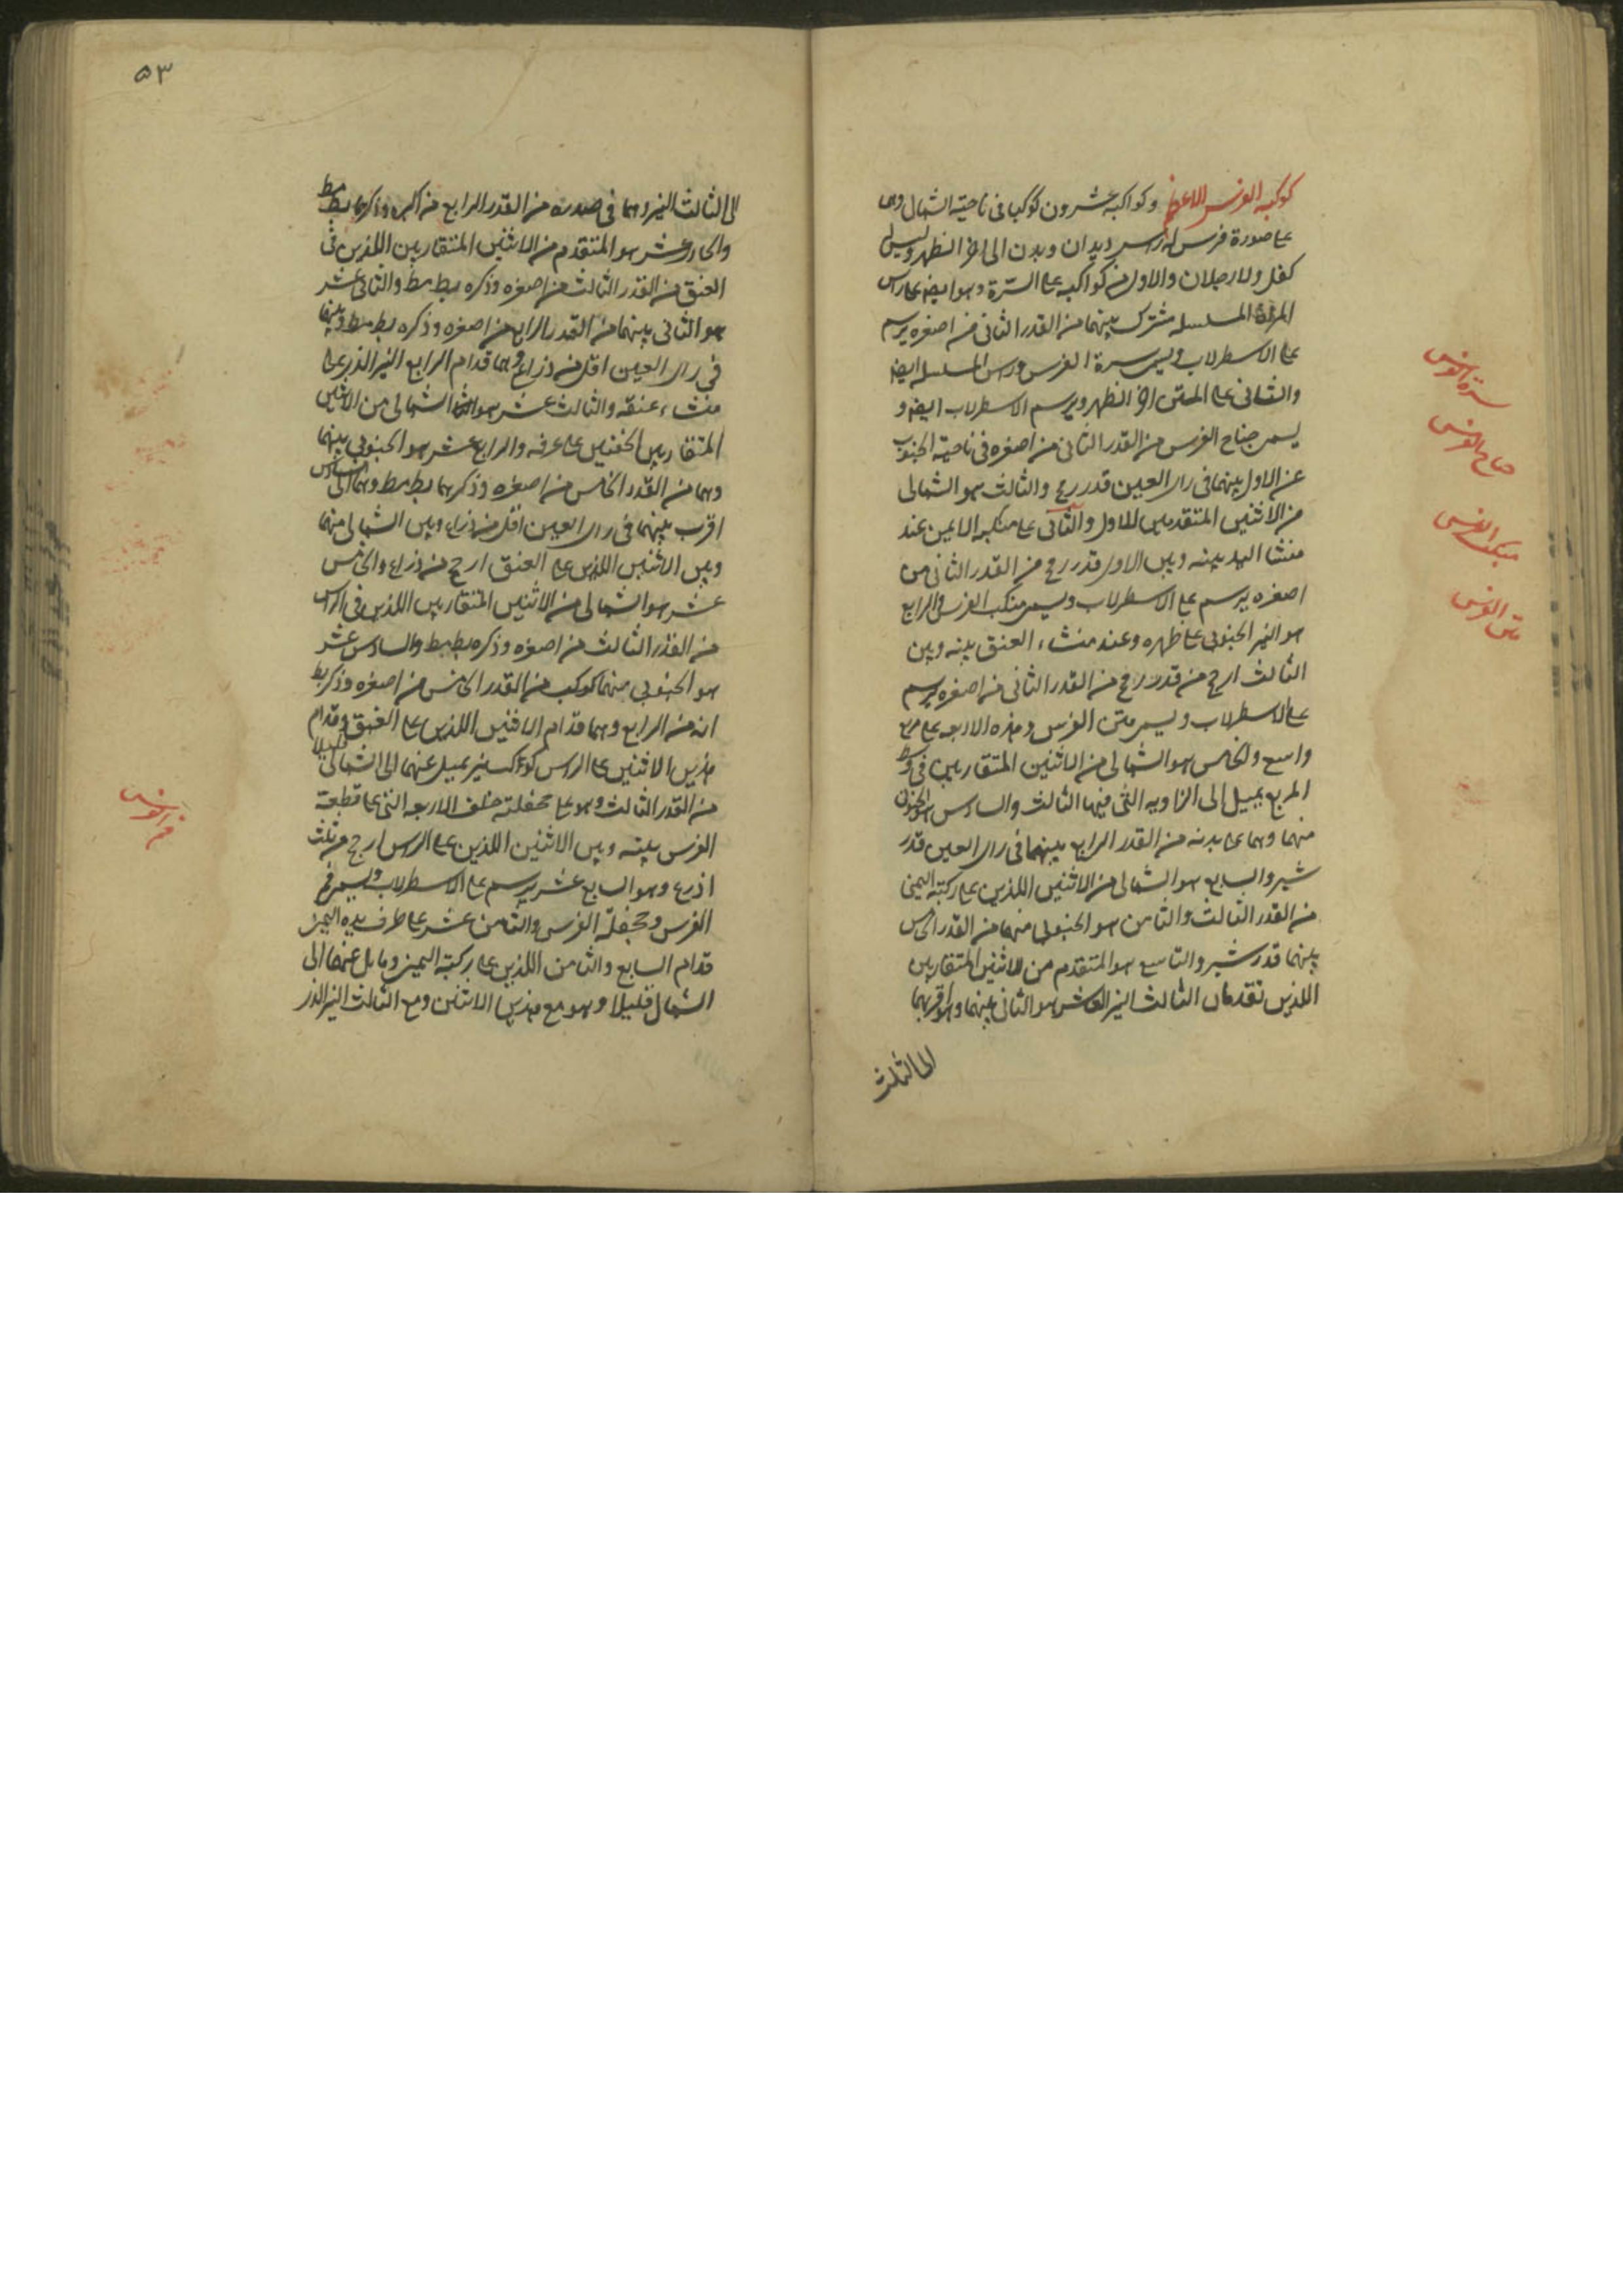 كوكبه الفرس الاعظم وكواكبه عشرون كوكبا فى ناحية الشمال وهى
على صورة فرس له راس ويدان وبدن الى اخر الظهر وليس له
كفل ولا رجلان والاول من كواكبه على السرة وهو ايضا على راس
المراة المسلسله مشترك بينهما من القدر الثانى من اصغره يرسم
على الاسطرلاب ويسمى سرة الفرس وراس المسلسله ايضا
والثانى على المتن اخر الظهر ويرسم الاسطرلاب ايضا و
يسمى جناح الفرس من القدر الثانى من اصغره فى ناحية الجنوب
عن الاول بينهما فى راى العين قدر رمح والثالث هو الشمالى
من الاثنين المتقدمين للاول والثانى على منكبه الايمن عند
منشا اليد بينه وبين الاول قدر رمح من القدر الثانى من
اصغره يرسم على الاسطرلاب ويسمى منكب الفرس والرابع
هو النير الجنوبى على ظهره وعند منشاء العنق بينه وبين
الثالث ارجح من قدر رمح من القدر الثانى من اصغره يرسم
على الاسطرلاب ويسمى متن الفرس وهذه الاربعه على مربع
واسع والخامس هو الشمالى من الاثنين المتقاربين فى وسط
المربع يميل الى الزاويه التى فيها الثالث والسادس هو الجنوبى
منهما وهما على بدنه من القدر الرابع بينهما فى راى العين قدر
شبر والسابع هو الشمالى من الاثنين اللذين على ركبته اليمنى
من القدر الثالث والثامن هو الجنوبى منهما من القدر الخامس
بينهما قدر شبر والتاسع هو المتقدم من الاثنين المتقاربين
اللذين تقدمان الثالث النير العاشر هو الثانى منهما وهو اقربهما
الى الثالث
سرة الفرس
جناح الفرس
منكب الفرس
متن الفرس
٥٣
الى الثالث النير وهما فى صدره من القدر الرابع من اكبره وذكرهما بط مط
والحادى عشر هو المتقدم من الاثنين المتقاربين اللذين فى
العنق من القدر الثالث من اصغره وذكره بط مط والثانى عشر
هو الثانى بينهما من القدر الرابع من اصغره وذكره بط مط وبينهما
فى راى العين اقل من ذراع وهما قدام الرابع النير الذى على
منشاء عنقه والثالث عشر هو الشمالى من الاثنين
المتقاربين الخفيين على عرفه والرابع عشر هو الجنوبى بينهما
وهما من القدر الخامس من اصغره وذكرهما بط مط وهما الى السادس
اقرب بينهما فى راى العين اقل من ذراع وبين الشمالى منهما
وبين الاثنين اللذين على العنق ارجح من ذراع والخامس
عشر هو الشمالى من الاثنين المتقاربين اللذين فى الراس
من القدر الثالث من اصغره وذكره بط مط والسادس عشر
هو الجنوبى منهما كوكب من القدر الخامس من اصغره وذكر بط
انه من الرابع وهما قدام الاثنين اللذين على العنق وقدام
هذين الاثنين على الراس كوكب نير يميل عنهما الى الشمالى قليلا
من القدر الثالث وهو على جحفلته خلف الاربعه التى على قطعة
الفرس بينه وبين الاثنين اللذين على الراس ارجح من ثلث
اذرع وهو السابع عشر يرسم على الاسطرلاب ويسمى فم
الفرس وجحفلة الفرس والثامن عشر على طرف يده اليمنى
قدام السابع والثامن اللذين على ركبته اليمنى ومايل عنهما الى
الشمال قليلا وهو مع هذين الاثنين ومع الثالث النير الذى
فم الفرس